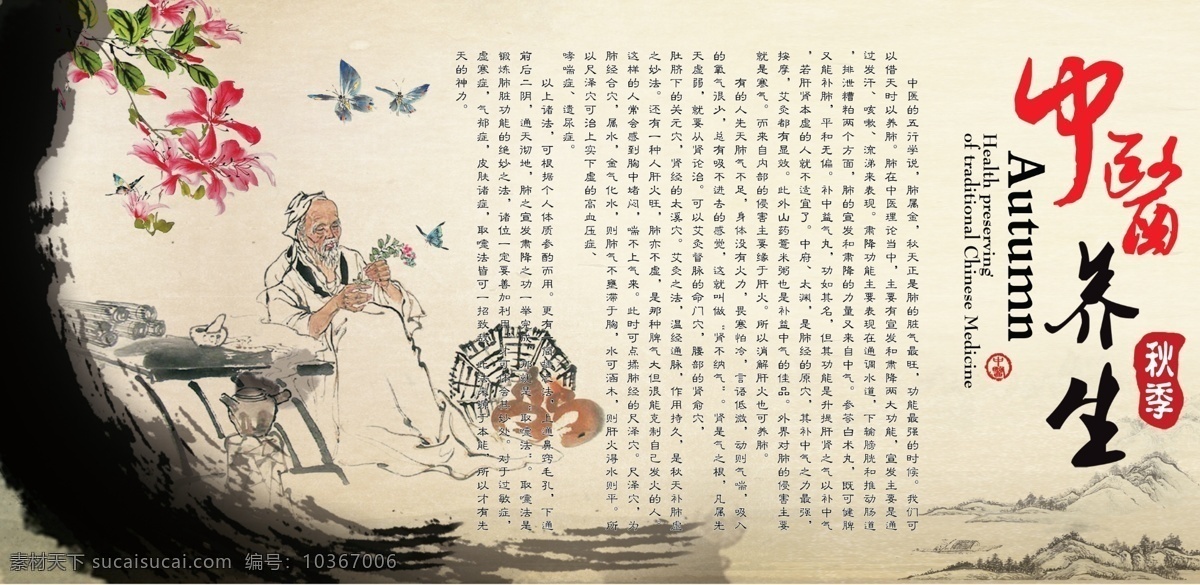 中醫
养生
秋季
Autumn
Health preserving
of traditional Chinese Medicine
中醫
中医的五行学说，肺属金，秋天正是肺的脏气最旺，功能最强的时候。我们可
以借天时以养肺。肺在中医理论当中，主要有宣发和肃降两大功能，宣发主要是通
过发汗、咳嗽、流涕来表现。肃降功能主要表现在通调水道，下输膀胱和推动肠道
，排泄糟粕两个方面，肺的宣发和肃降的力量又来自中气。参苓白术丸，既可健脾
又能补肺，平和无偏。补中益气丸，功如其名，但其功能是升提肝肾之气以补中气
，若肝肾本虚的人就不适宜了。中府、太渊，是肺经的原穴，其补中气之力最强，
按摩，艾灸都有显效。此外山药薏米粥也是补益中气的佳品。外界对肺的侵害主要
就是寒气。而来自内部的侵害主要缘于肝火。所以消解肝火也可养肺。
有的人先天肺气不足，身体没有火力，畏寒怕冷，言语低微，动则气喘，吸入
的氧气很少，总有吸不进去的感觉，这就叫做“肾不纳气”。肾是气之根，凡属先
天虚弱，就要从肾论治。可以艾灸督脉的命门穴，腰部的肾俞穴，
肚脐下的关元穴，肾经的太溪穴。艾灸之法，温经通脉，作用持久，是秋天补肺虚
之妙法。还有一种人肝火旺，肺亦不虚，是那种脾气大但很能克制自己发火的人，
这样的人常会感到胸中堵闷，喘不上气来。此时可点揉肺经的尺泽穴。尺泽穴，为
肺经合穴，属水，金气化水，则肺气不壅滞于胸，水可涵木，则肝火得水则平。所
以尺泽穴可治上实下虚的高血压症、
哮喘症、遗尿症。
以上诸法，可根据个人体质参酌而用。更有法，上通鼻窍毛孔，下通
前后二阴，通天彻地，肺之宣发肃降之功一举完成，“取嚏法”。取嚏法是
锻炼肺脏功能的绝妙之法，诸位一定要善加利用，才可体会其妙处。对于过敏症，
虚寒症，气郁症，皮肤诸症，取嚏法皆可一招致于本能，所以才有先
天的神力。
素材天下 sucaisucai.com 编号：10367006